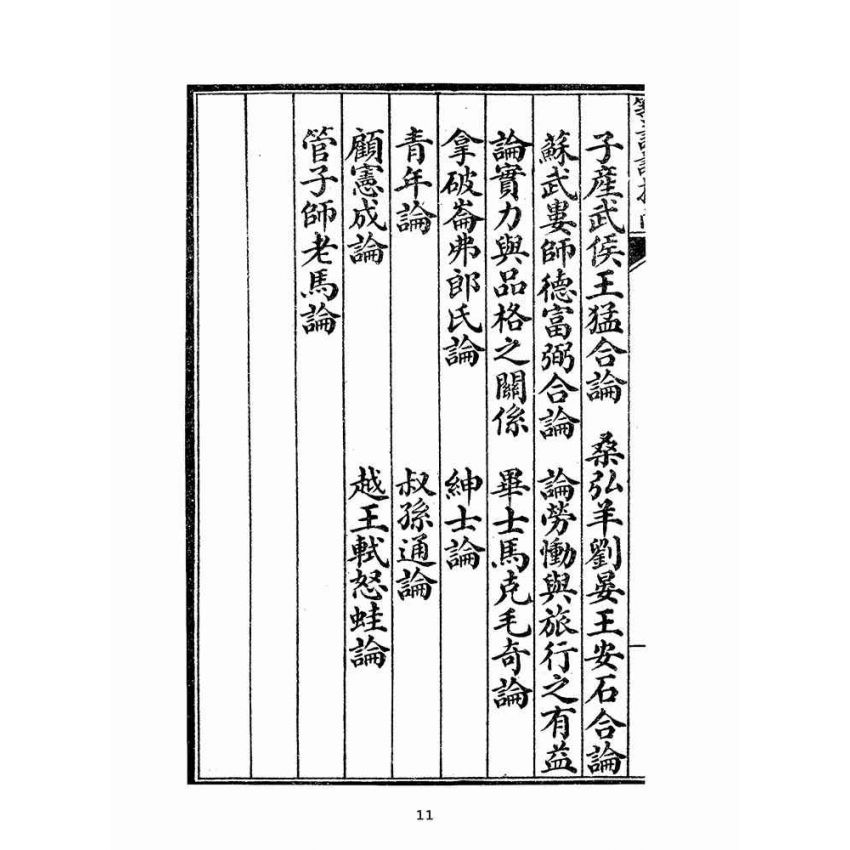 子產武侯王猛合論　桑弘羊劉晏王安石合論
蘇武婁師德富弼合論　論勞慟與旅行之有益
論實力與品格之關係　畢士馬克毛奇論
拿破崙弗郎氏論　紳士論
青年論　叔孫通論
顧憲成論　越王軾怒蛙論
管子師老馬論
11